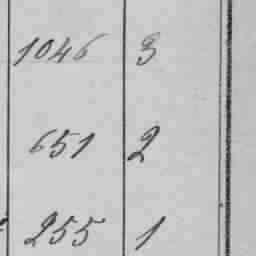 1046 3
651 2
255 1